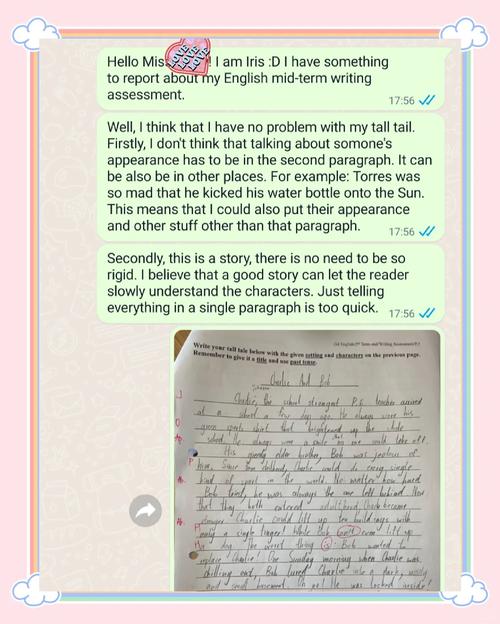 Hello Mis LOVE LOVE LOVE ! I am Iris :D I have something
to report about my English mid-term writing
assessment.
17:56
Well, I think that I have no problem with my tall tail.
Firstly, I don't think that talking about somone's
appearance has to be in the second paragraph. It can
be also be in other places. For example: Torres was
so mad that he kicked his water bottle onto the Sun.
This means that I could also put their appearance
and other stuff other than that paragraph.
17:56
Secondly, this is a story, there is no need to be so
rigid. I believe that a good story can let the reader
slowly understand the characters. Just telling
everything in a single paragraph is too quick.
17:56
Write your tall tale below with the given setting and characters on the previous page.
Remember to give it a title and use past tense.
Charlie And Bob
Charlie, the school strongest P.E. teacher arrived
at a school a few days ago. He always wore his
green sports shirt that brightened up the whole
school. He always wore a smile that no one could take off.
His greedy elder brother, Bob was jealous of
him. Since childhood, Charlie could do every single
kind of sport in the world. No matter how hard
Bob tried, he was always the one left behind. Now
that they both entered adulthood, Charlie became
stronger. Charlie could lift up ten buildings with
only a single finger! While Bob can't even lift up
a dog. The worst thing is Bob wanted to
replace Charlie! One Sunday morning when Charlie was
chilling out, Bob lured Charlie into a dark,
and small basement. Oh no! He was locked inside!